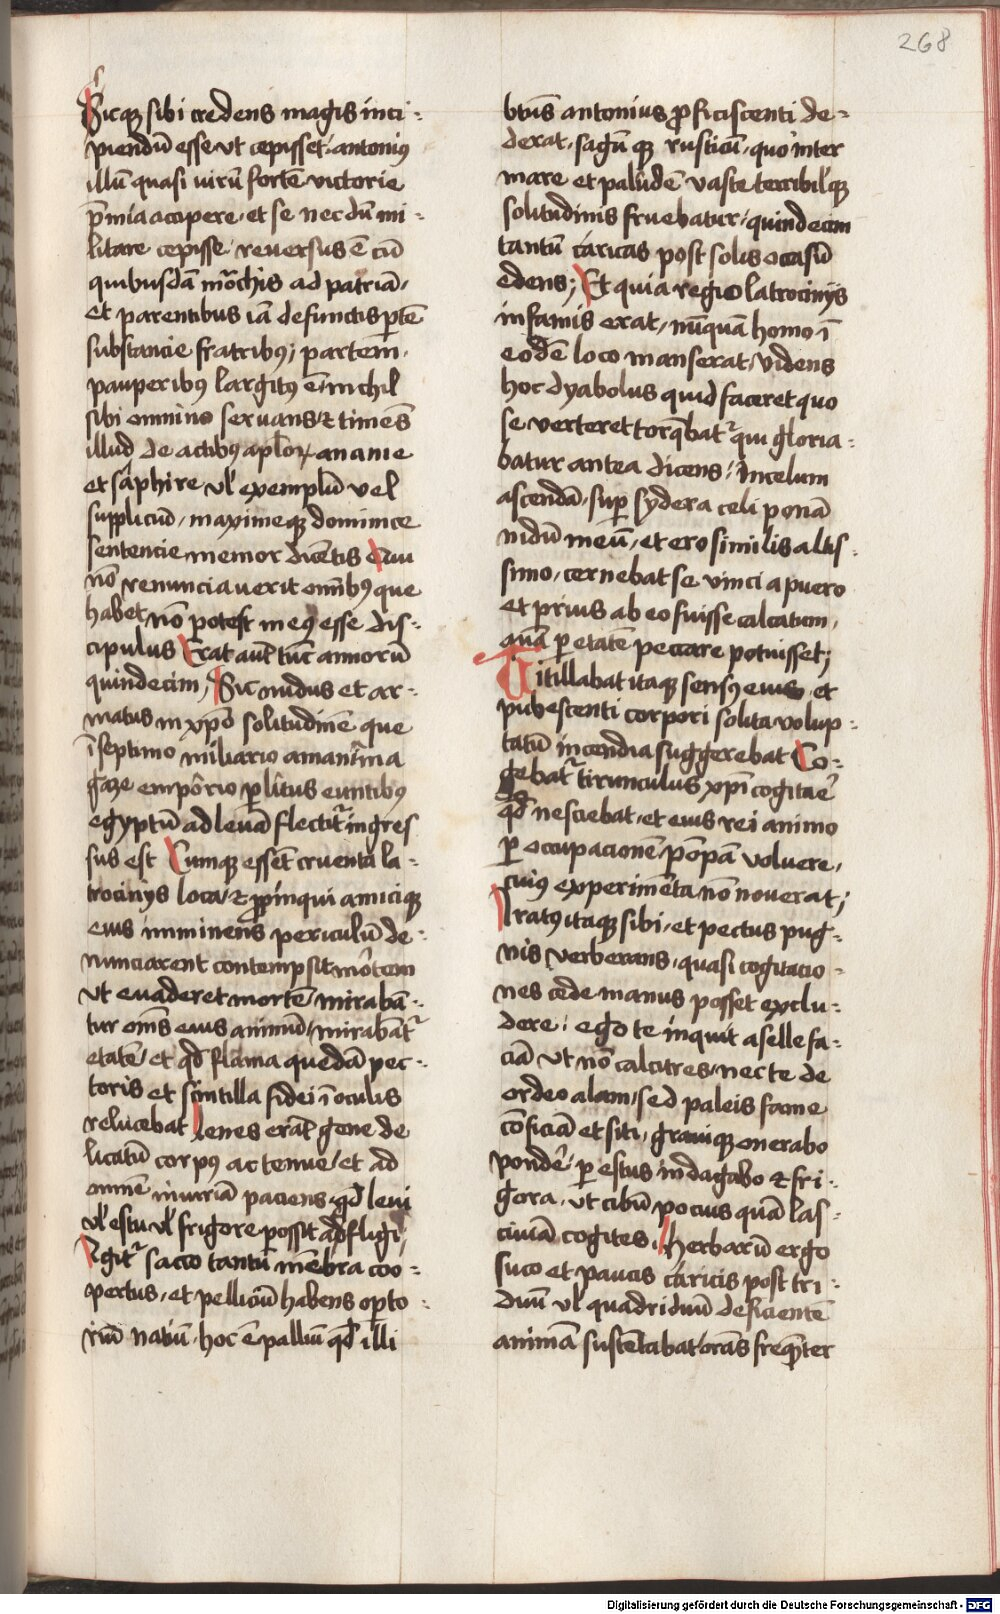 268
Sicq sibi credens magis inci-
piendū esse vt cepisset antonius
illū quasi uirū fortē victorie
p̄mia accipere et se necdū mi-
litare cepisse reuersus ē cū
quibusdā mōchis ad patriā
et parentibus iā defunctis ptē
substancie fratribus; partem
pauperibus largitus ē nichil
sibi omnino seruans et timēs
illud de actibus aplor ananie
et saphire vl exemplū vel
suppliciū maximeq dominice
sentencie memor dicētis Qui
nō renunciauerit omībus que
habet nō potest meus esse dis-
cipulus Erat aut tūc annorū
quindecim, Sic nudus et ar-
matus in xpō solitudinē que
ī septimo miliario amantima
gaze empōrio p litus euntibus
egyptū ad leuā flectitr ingres
sus est Cumq essēt cruenta la-
trocinijs loca et ppinqui amiciq
eius imminens periculū de-
nunciarent contempsit mōtem
vt euaderet mortē mirabā-
tur omēs eius animū mirabātr
etatē et qd flāma quedā pec-
toris et scintilla fidei ī oculis
relucebat lenes erāt gene de
licatū corpus ac tenue et ad
omnē iniuriā paciens qd leui
vl estu vl frigore possit adfligi,
Igitr sacco tantū mēbra coo-
pertus et pelliciū habens epto
riū natiū hoc ē palliū qd illi
btūs antonius pficiscenti de-
derat, sagū q rusticū quo inter
mare et paludē vaste terribilq
solitudinis fruebatur quindecim
tantū caricas post solis occasū
edens; Et quia regio latrocinijs
infamis erat, nūquā homo ī
eodē loco manserat videns
hoc dyabolus quid faceret quo
se verteret torqbatr qui gloria-
batur antea dicens, in celum
ascendā, sup sydera celi ponā
nidū meū, et ero similis altis-
simo, cernebat se vinci a puero
et prius ab eo fuisse calcatum,
quā p etatē peccare potuisset;
Titillabat itaq sensus eius et
pubescenti corpori solita volup-
tatū incendia suggerebat Co-
gebatr tirunculus xpi cogitaē
qd nesciebat, et eius rei animo
p occupacionē pōpā voluere,
cuius experimēta nō nouerat;
Iratus itaq sibi, et pectus pug-
nis verberans, quasi cogitacio-
nes cede manus posset exclu-
dere, ego te inquit aselle fa-
ciā vt nō calcitres, nec te de
ordeo alam, sed paleis fame
cōficiā et siti, grauiq onerabo
pondē, p estus indagabo et fri-
gora, vt cibū pocius quā las-
ciuiā cogites, herbarū ergo
suco et paucis caricis post tri-
duū vl quadriduū deficientē
animā sustētabat orās freqnter
Digitalisierung gefördert durch die Deutsche Forschungsgemeinschaft - DFG